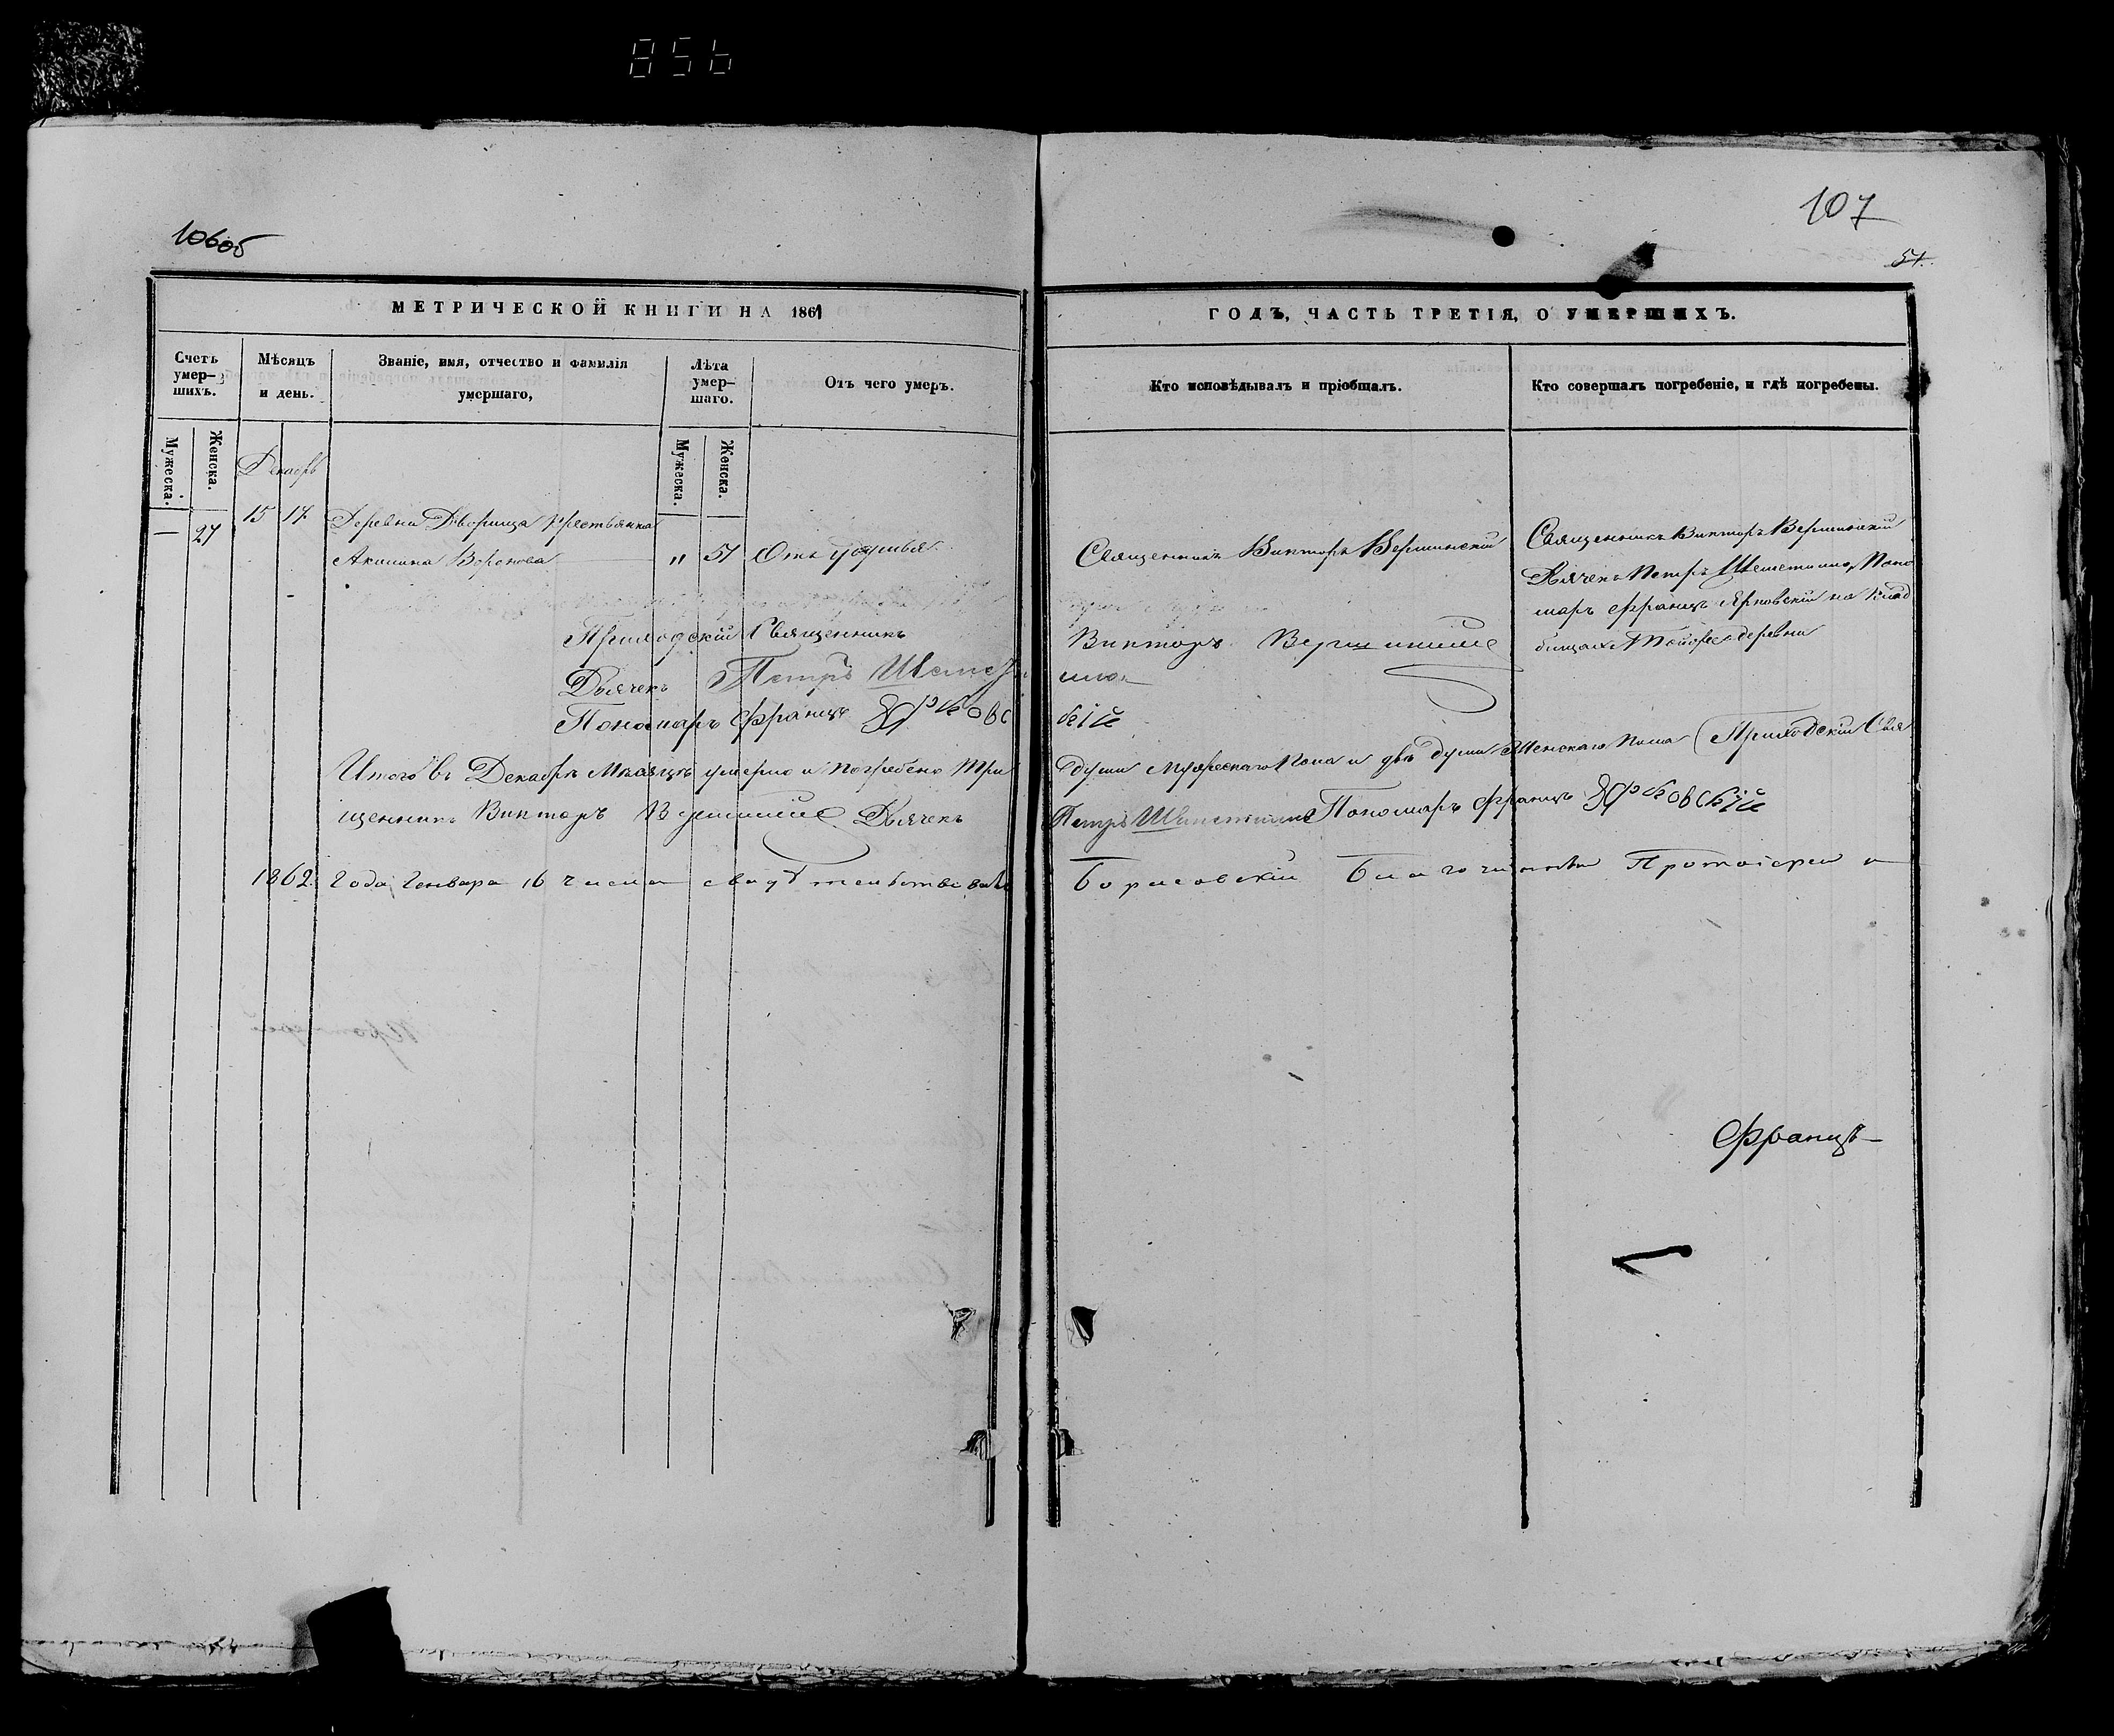 856
106об
107
51.
МЕТРИЧЕСКОЙ КНИГИ НА 1861
ГОДЪ, ЧАСТЬ ТРЕТІЯ, О УМЕРШИХЪ.
Счетъ умер-шихъ.
Мѣсяцъ и день.
Званіе, имя, отчество и фамилія умершаго,
Лѣта умер-шаго.
Отъ чего умеръ.
Кто исповѣдывалъ и пріобщалъ.
Кто совершалъ погребеніе, и гдѣ погребены.
Мужеска.
Женска.
Мужеска.
Женска.
Декабрь
— 27 15 17 Деревни Дворища крестьянка
Акилина Воронова — " 51 Отъ удушья
Священникъ Викторъ Вершинскій
Священникъ Викторъ Вершинскій
Дьячекъ Петръ Шеметилло, Поно
маръ Францъ Ярковскій на клад
бищахъ тойже деревни
Приходскій Священникъ Викторъ
Дьячекъ Петръ
Пономаръ Францъ Ярковскій
Итого въ Декабрѣ Мѣсяцѣ умерло и погребено три души мужескаго пола и двѣ души женскаго пола Приходскій Свя
щенникъ Викторъ Дьячекъ Петръ Пономаръ Францъ Ярковскій
1862. Года, Генваря 16 числа свидѣтельствовалъ Борисовскій Благочинный Протоіерей
Францъ